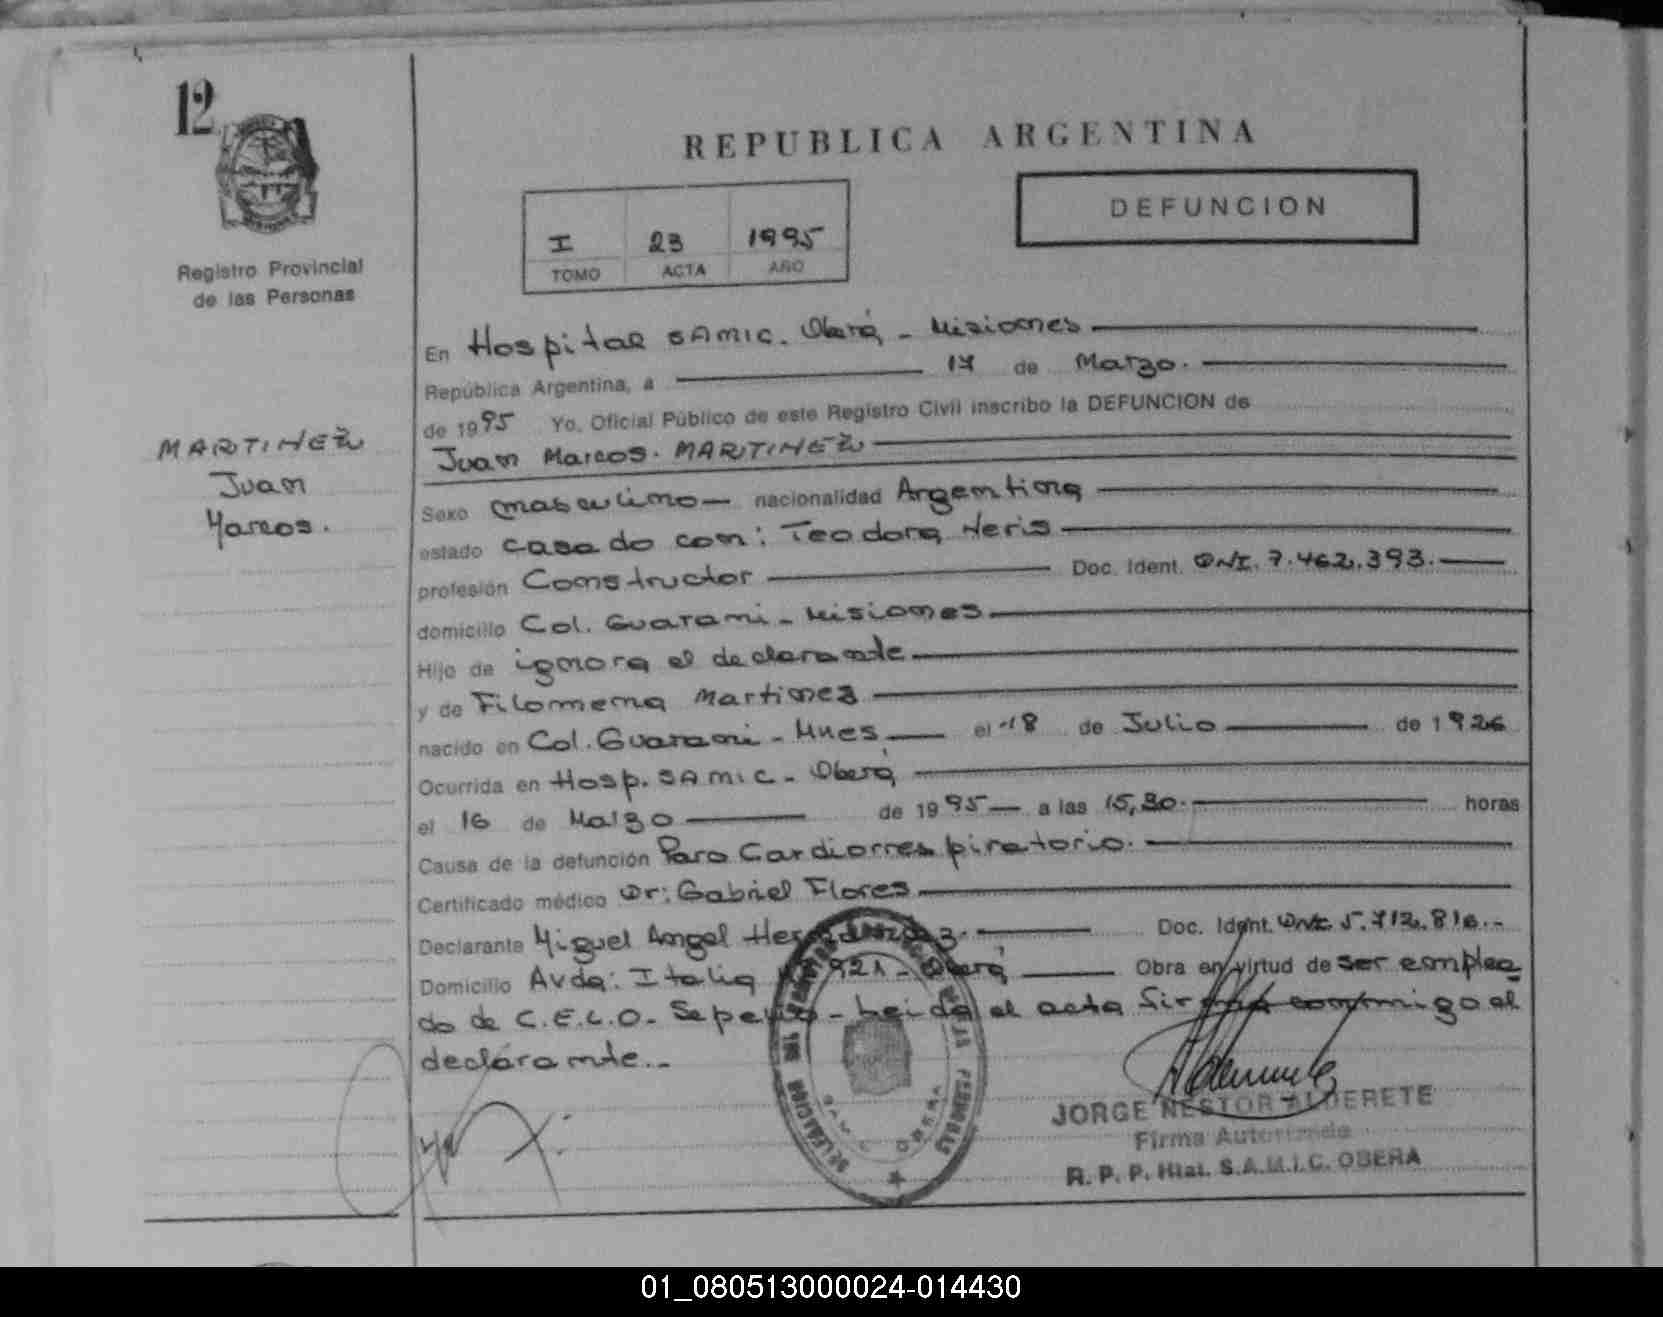 12
REPUBLICA ARGENTINA
DEFUNCION
I 23 1995
TOMO ACTA AÑO
Registro Provincial
de las Personas
MARTINEZ
Juan
Marcos.
En Hospital SAMIC. Oberá - Misiones
República Argentina, a 17 de Marzo.
de 1995 Yo, Oficial Público de este Registro Civil inscribo la DEFUNCION de
Juan Marcos. MARTINEZ
Sexo masculino nacionalidad Argentina
estado casado con: Teodora Neris
profesión Constructor Doc. Ident. DNI. 7.462.393.
domicilio Col. Guarani - Misiones
Hijo de ignora el declarante
y de Filomena Martinez
nacido en Col. Guarani - Mnes. el 18 de Julio de 1926
Ocurrida en Hosp. SAMIC - Oberá
el 16 de Marzo de 1995 a las 15,30. horas
Causa de la defunción Paro Cardiorrespiratorio.
Certificado médico Dr: Gabriel Flores
Declarante Miguel Angel Doc. Ident. DNI. 5.712.816.-
Domicilio Avda: Italia 921 - Oberá Obra en virtud de ser emplea
do de C.E.L.O. Sepelio - Leida el acta firma conmigo el
declarante.-
JORGE NESTOR ALDERETE
Firma Autorizada
R. P. P. Htal. S.A.M.I.C. OBERA
01_080513000024-014430